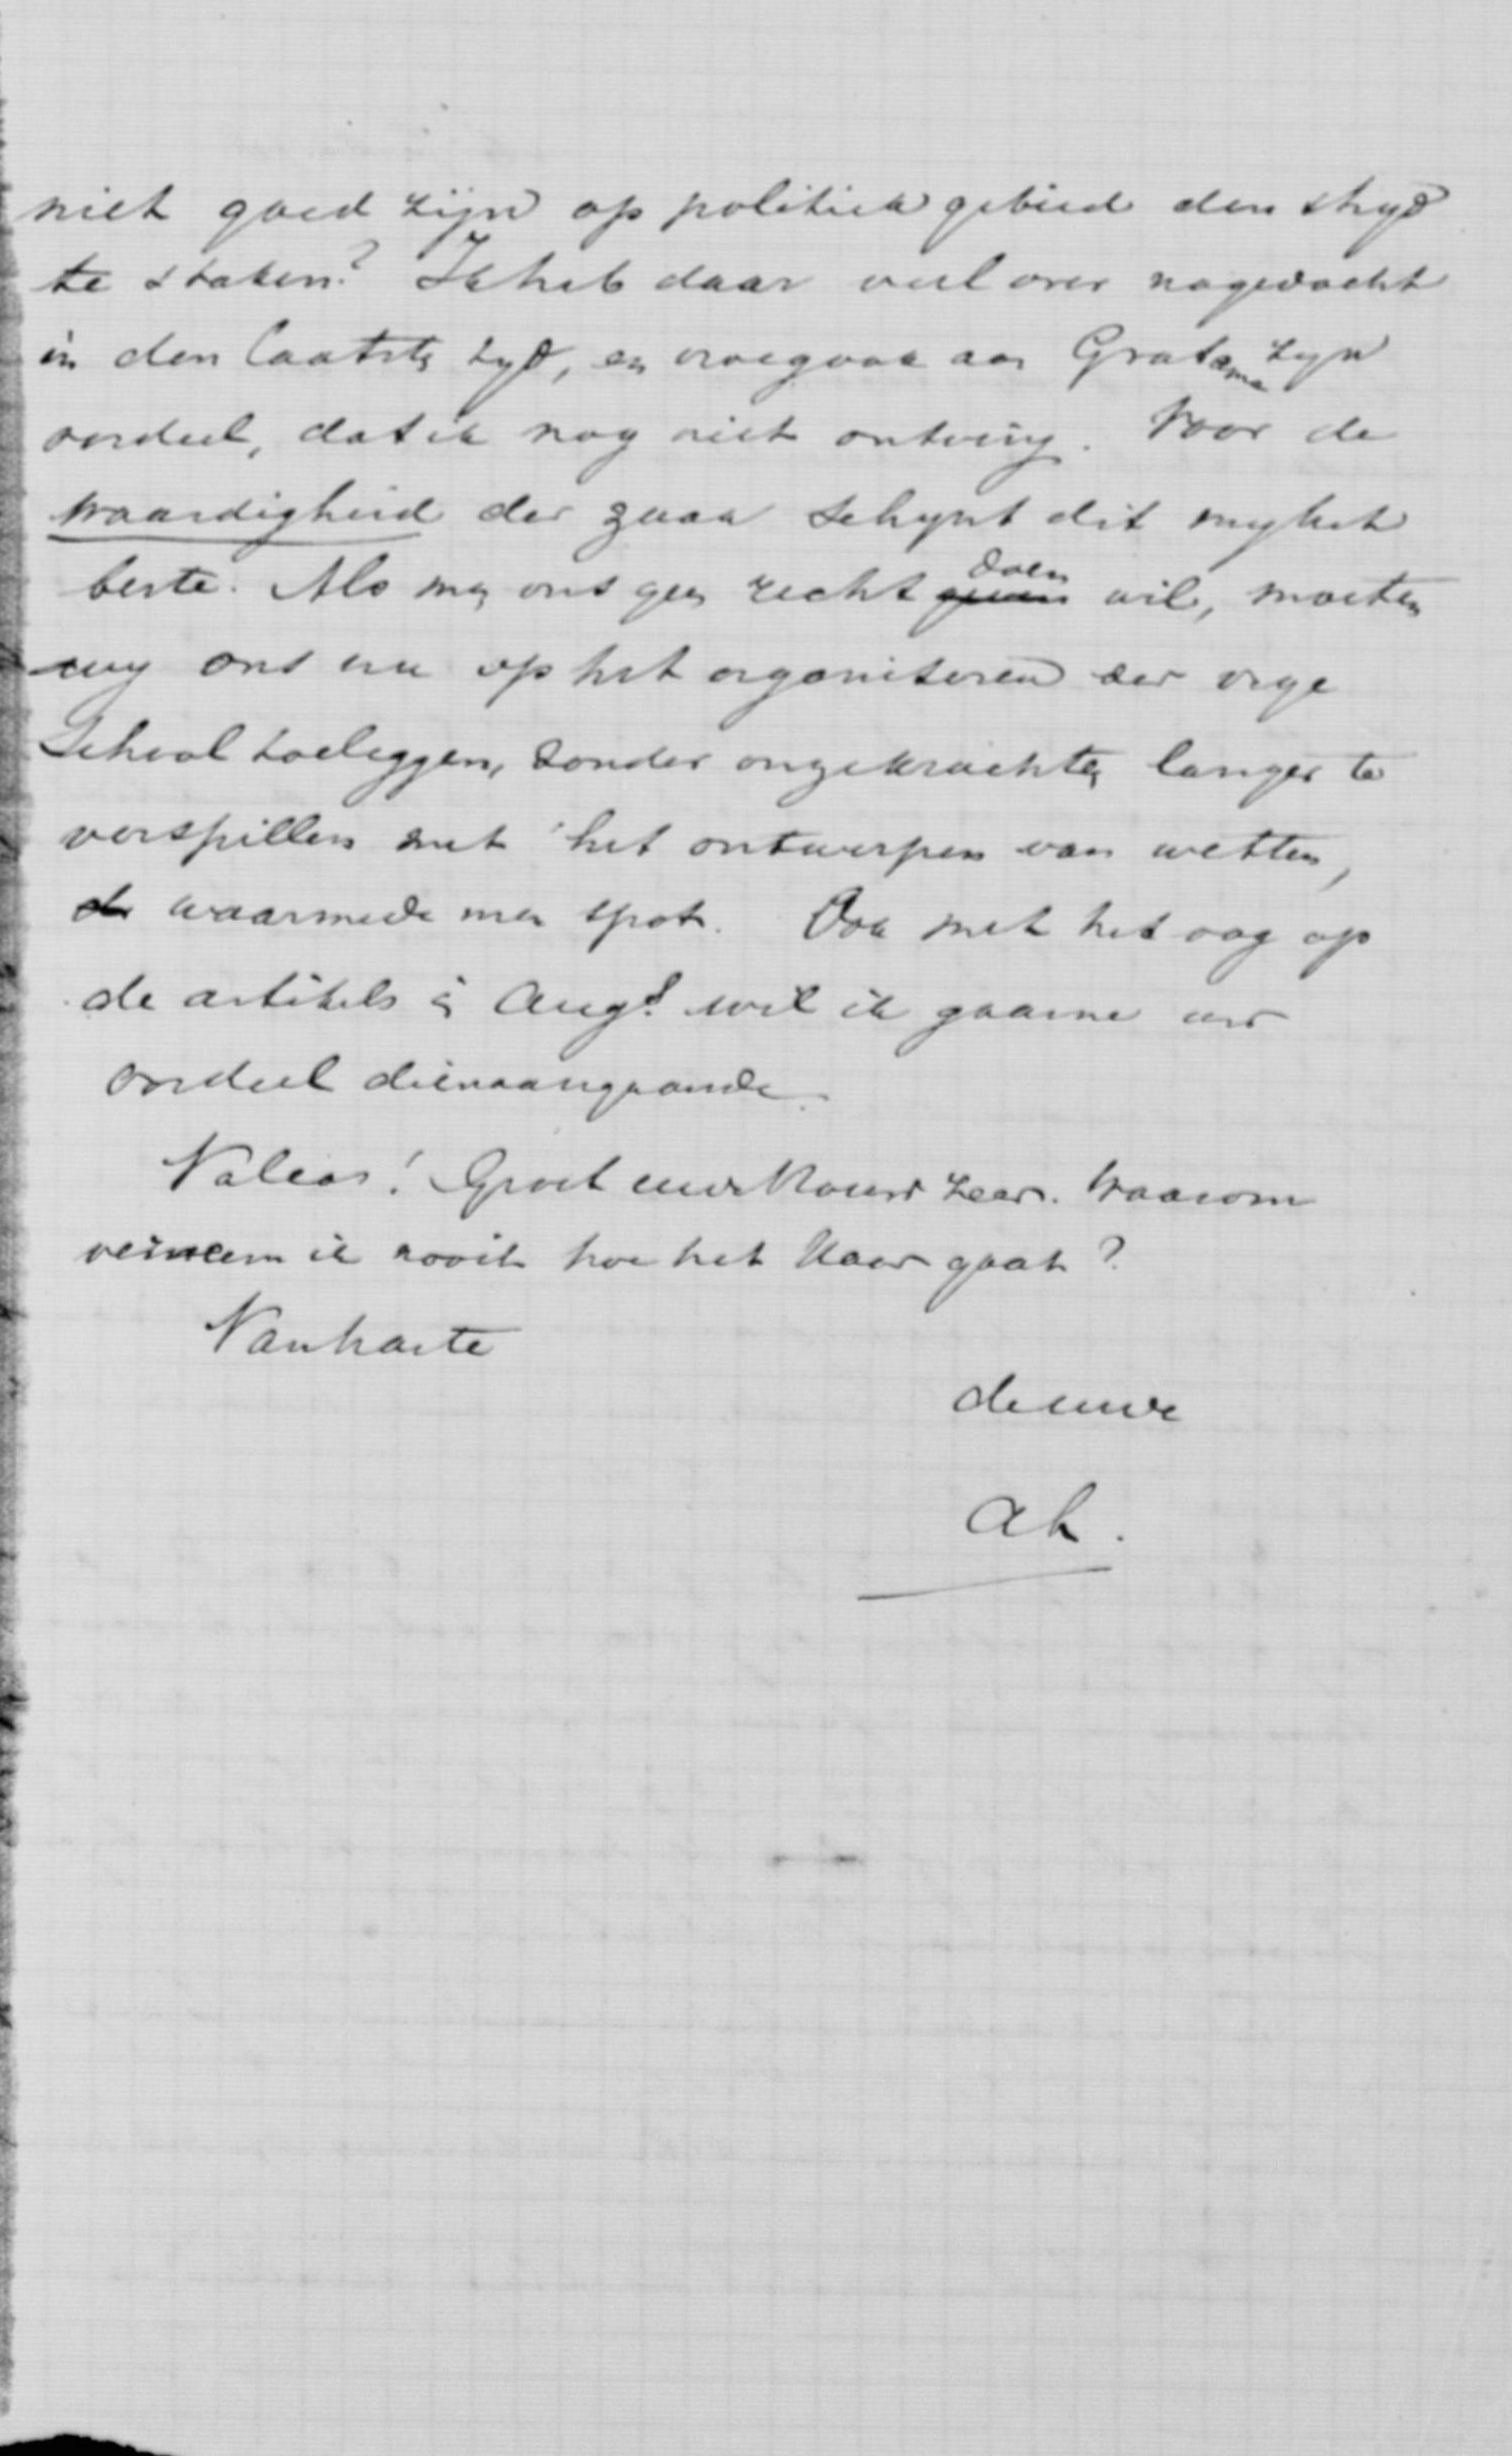 niet goed zijn op politiek gebied den stryd
te staken? Ik heb daar veel over nagedacht
in den laatste tyd, en vroeg ook aan Gratama zyn
oordeel, dat ik nog niet ontving. Voor de
waardigheid der zaak schynt dit my het
beste. Als men ons geen recht geven doen wil, moeten
wy ons nu op het organiseren der vrye
School toeleggen, zonder onze krachten langer te
verspillen met het ontwerpen van wetten,
de waarmede men spot. Ook met het oog op
de artikels in Augs wil ik gaarne uw
oordeel dienaangaande.
Valeas! Groet uwe Vrouw zeer. Waarom
verneem ik nooit hoe het Haar gaat?
Van harte
de uwe
AK.